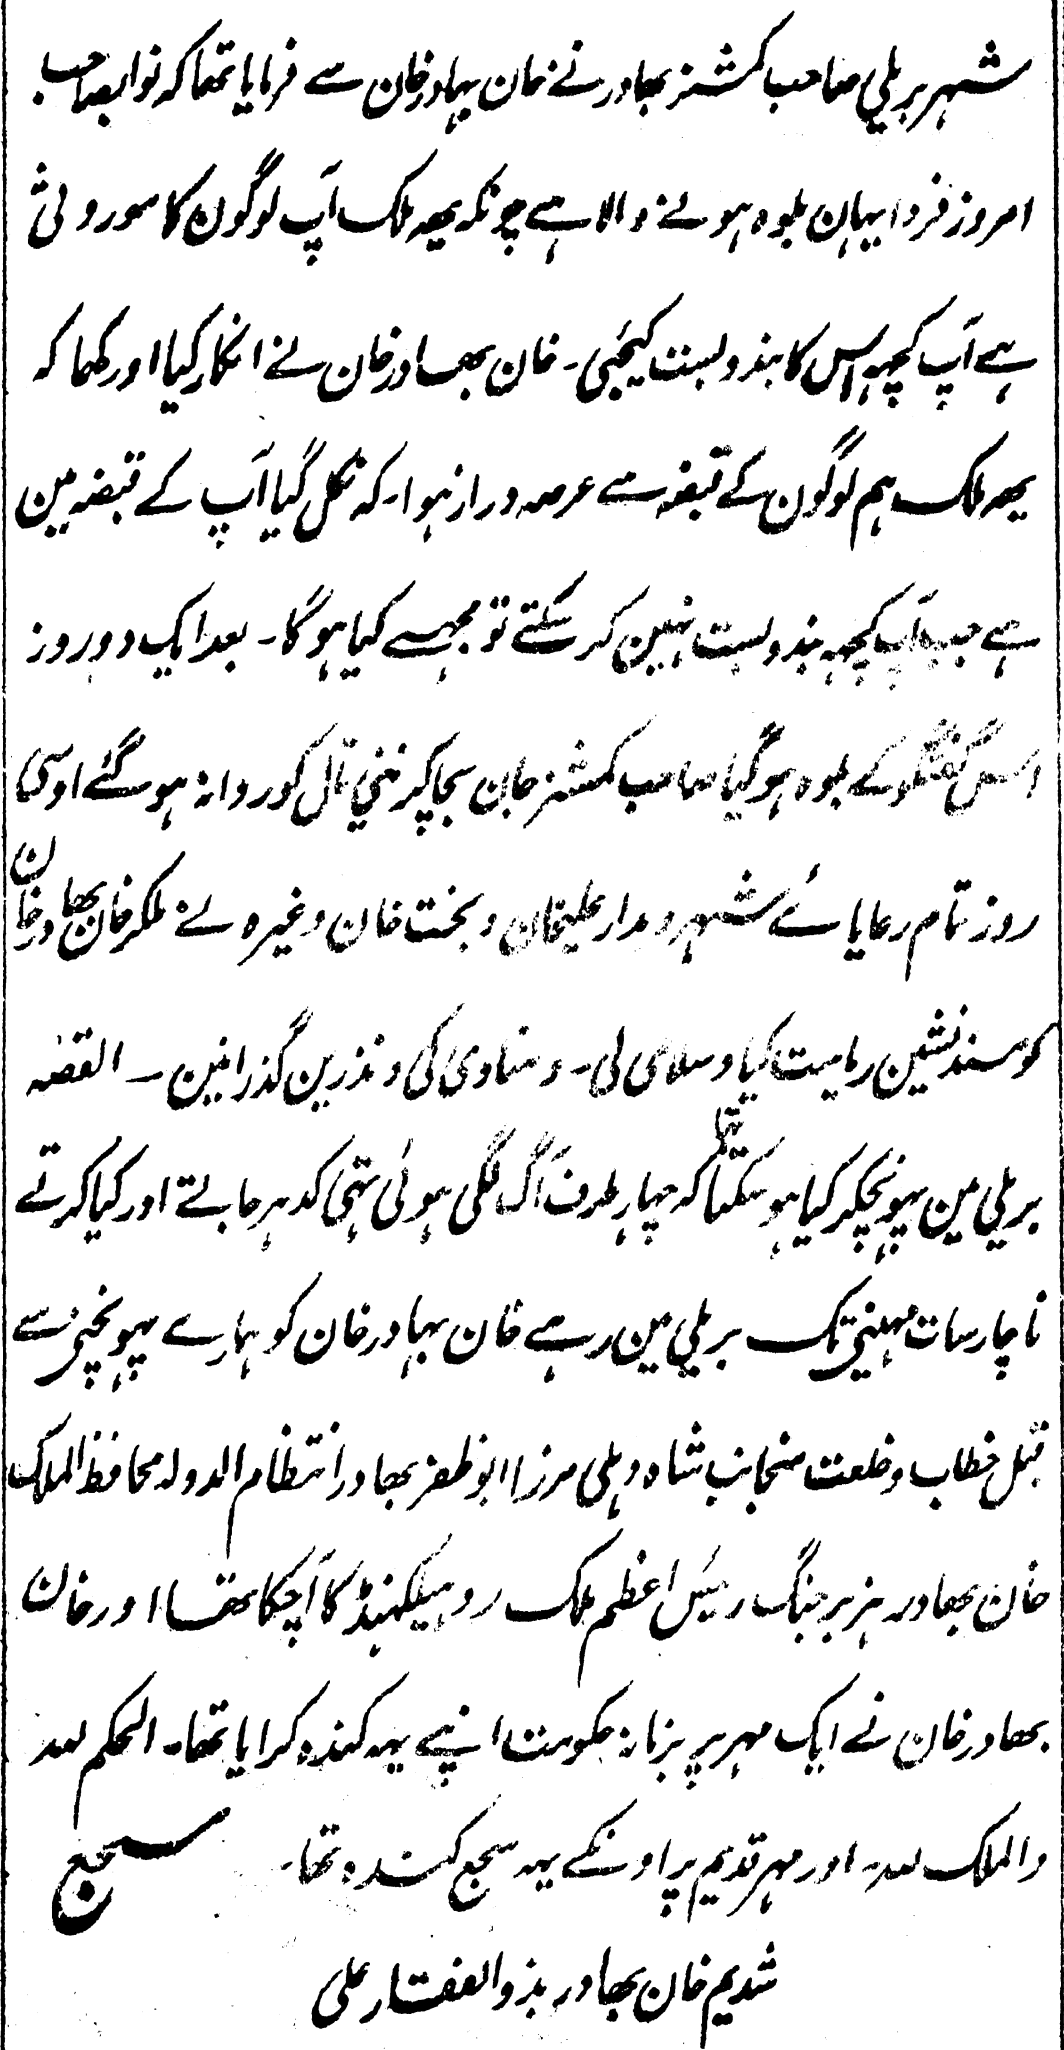 شہر بریلی صاحب کمشنر بھادر نے خان بہادر خان سے فرمایا تھا کہ نوابصاحب
امروز فردا یہان بلوہ ہونے والا ہے چونکہ یھہ ملک آپ لوگون کا موروثی
ہے آپ کچھہ اس کا بندوبست کیجئی۔ خان بھادر خان نے انکار کیا اور کھا کہ
یھہ ملک ہم لوگون کے قبضہ سے عرصہ دراز ہوا۔ کہ نکل گیا آپ کے قبضہ مین
ہے جب آپ کچھہ بندوبست نہین کر سکتے تو مجھسے کیا ہو گا۔ بعد ایک دو روز
اس گفتگو کے بلوہ ہو گیا صاحب کمشنر جان بچا کر نینی تال کو روانہ ہو گئے اوسی
روز تمام رعایائے شہر و مدار علیخان و بخت خان وغیرہ نے ملکر خان بھادر خان
کو مسند نشین ریاست کیا و سلامی لی۔ و منادی کی و نذرین گذرانین ۔ القصہ
بریلی مین پہونچکر کیا ہو سکتا تھا کہ چہار طرف آگ لگی ہوئی تھی کدہر جاتے اور کیا کرتے
ناچار سات مہینی تک بریلی مین رہے خان بہادر خان کو ہمارے پہونچنی سے
قبل خطاب و خلعت منجانب شاہ دہلی مرزا ابو ظفر بھادر انتظام الدولہ محافظ الملک
خان بھادر ہزبر جنگ رئیس اعظم ملک روہیلکھنڈ کا آچکا تھا اور خان
بھادر خان نے ایک مہر پر بزمانہ حکومت اپنے یہہ کندہ کرایا تھا۔ الحکم للہ
والملک للہ۔ اور مہر قدیم پر اونکے یہہ سجع کندہ تھا۔ سجع
شدیم خان بھادر بذوالفقار علی